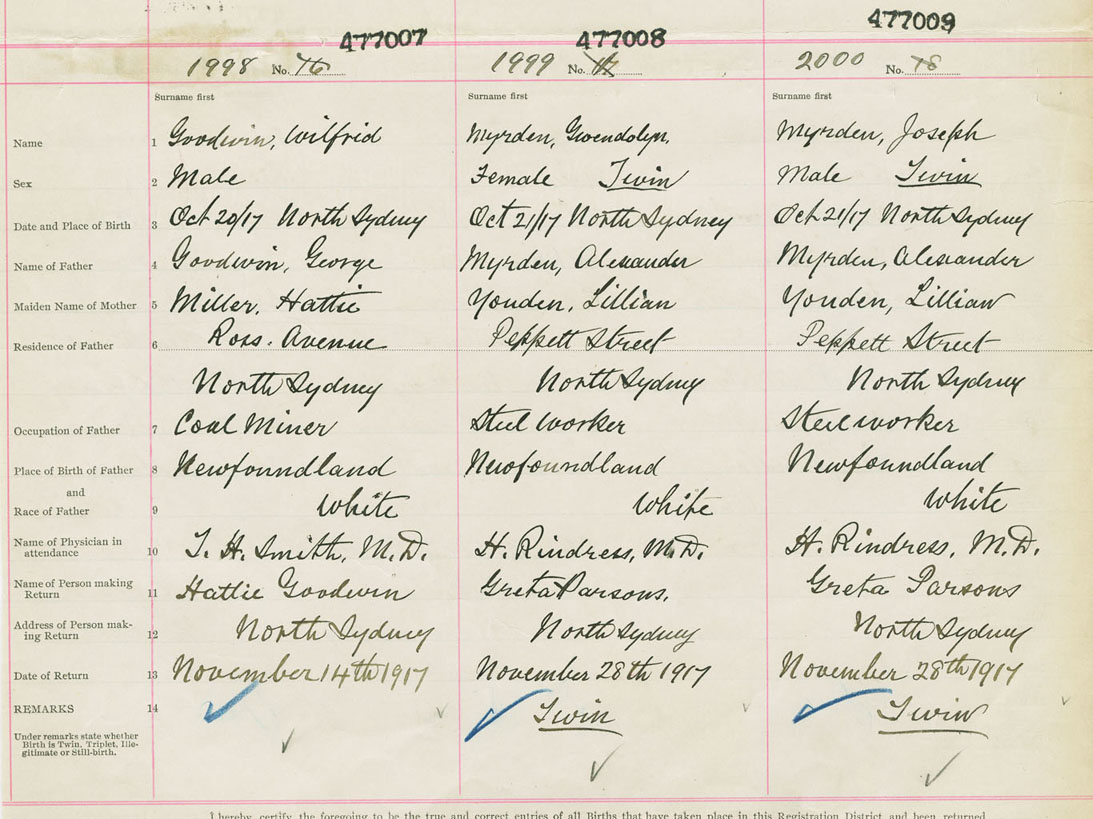 477007 477008 477009
1998 No. 76 1999 No. 2000 No. 78
Surname first Surname first Surname first
Name 1 Goodwin, Wilfrid Myrden, Gwendolyn. Myrden, Joseph
Sex 2 Male Female Twin Male Twin
Date and Place of Birth 3 Oct 20/17 North Sydney Oct 21/17 North Sydney Oct 21/17 North Sydney
Name of Father 4 Goodwin, George Myrden, Alexander Myrden, Alexander
Maiden Name of Mother 5 Miller, Hattie Youden, Lillian Youden, Lillian
Residence of Father 6 Ross. Avenue Peppett Street Peppett Street
North Sydney North Sydney North Sydney
Occupation of Father 7 Coal Miner Steel worker Steel worker
Place of Birth of Father 8 Newfoundland Newfoundland Newfoundland
and
Race of Father 9 White White White
Name of Physician in
attendance 10 T. H. Smith, M.D. H. Rindress, M.D. H. Rindress, M.D.
Name of Person making
Return 11 Hattie Goodwin Greta Parsons. Greta Parsons
Address of Person mak-
ing Return 12 North Sydney North Sydney North Sydney
Date of Return 13 November 14th 1917 November 28th 1917 November 28th 1917
REMARKS 14 Twin Twin
Under remarks state whether
Birth is Twin, Triplet, Ille-
gitimate or Still-birth.
I hereby certify the foregoing to be the true and correct entries of all Births that have taken place in this Registration District and been returned